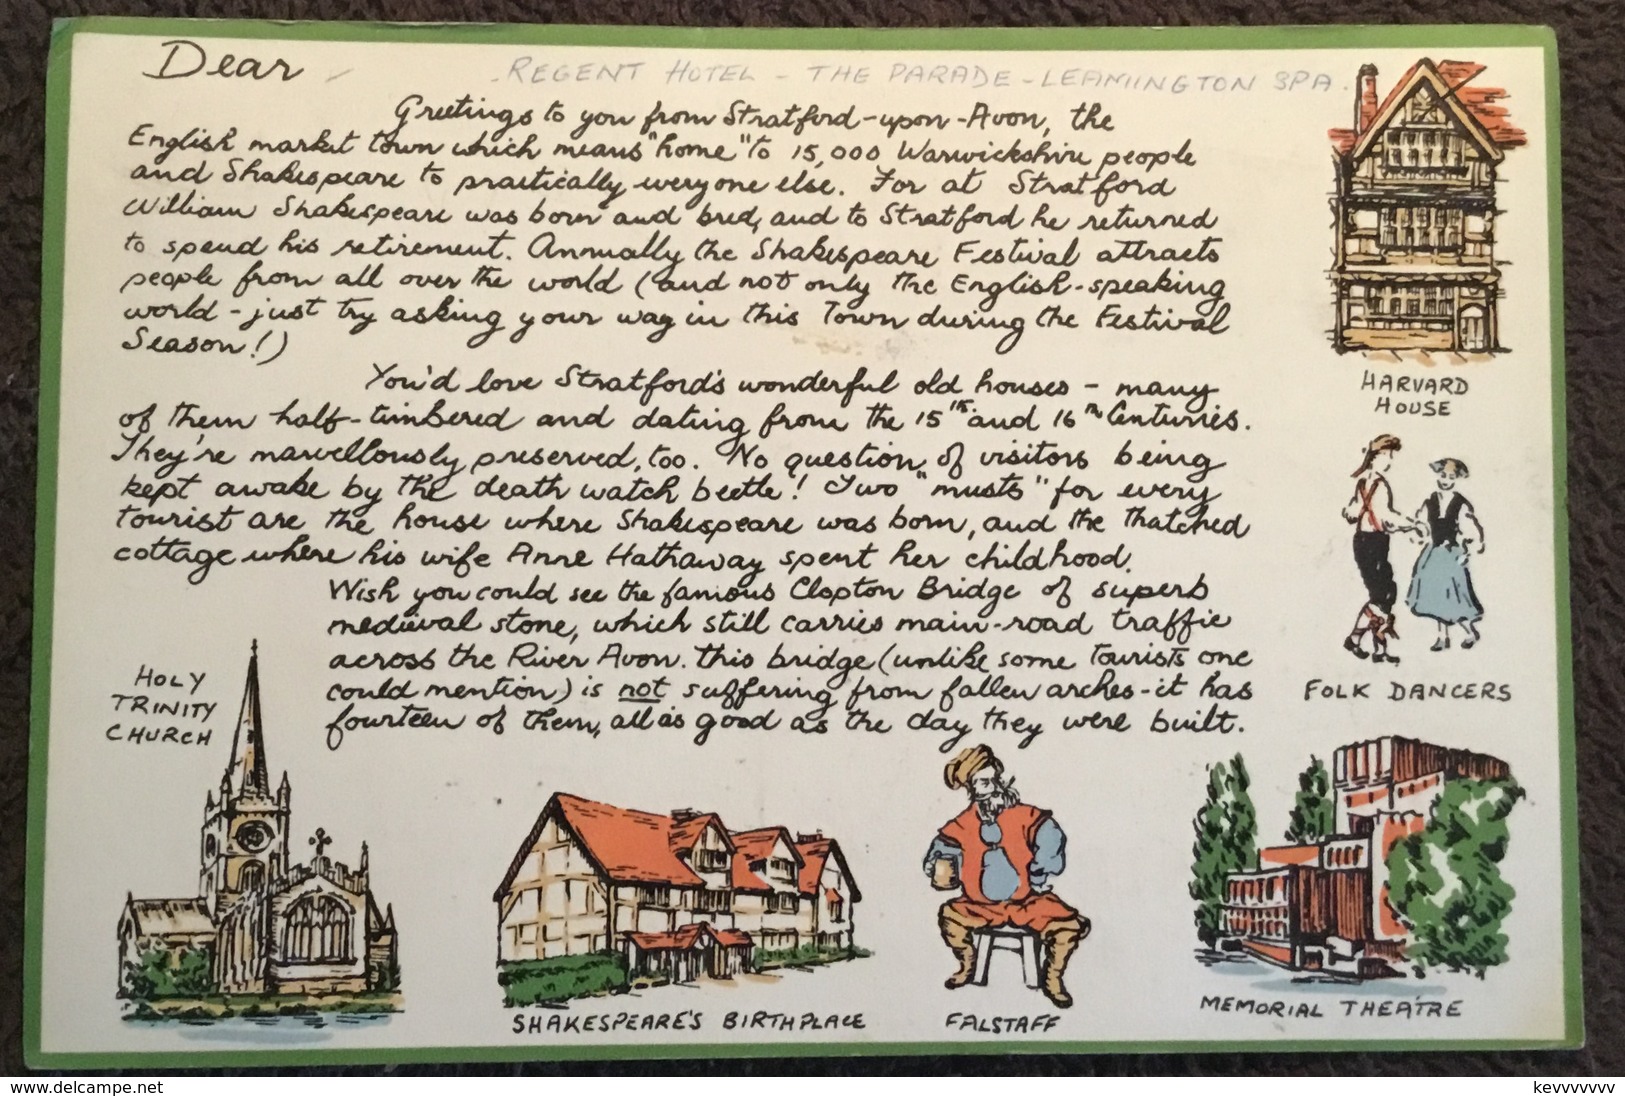 Dear
REGENT HOTEL - THE PARADE - LEAMINGTON SPA.
Greetings to you from Stratford-upon-Avon, the
English market town which means "home" to 15,000 Warwickshire people
and Shakespeare to practically everyone else. For at Stratford
William Shakespeare was born and bred, and to Stratford he returned
to spend his retirement. Annually the Shakespeare Festival attracts
people from all over the world (and not only the English-speaking
world - just try asking your way in this Town during the Festival
Season!)
You'd love Stratford's wonderful old houses - many
of them half-timbered and dating from the 15th and 16th Centuries.
They're marvellously preserved, too. No question of visitors being
kept awake by the death watch beetle! Two "musts" for every
tourist are the house where Shakespeare was born, and the thatched
cottage where his wife Anne Hathaway spent her childhood.
Wish you could see the famous Clopton Bridge of superb
mediæval stone, which still carries main-road traffic
across the River Avon. This bridge (unlike some tourists one
could mention) is not suffering from fallen arches - it has
fourteen of them, all as good as the day they were built.
HARVARD
HOUSE
FOLK DANCERS
HOLY
TRINITY
CHURCH
SHAKESPEARE'S BIRTHPLACE
FALSTAFF
MEMORIAL THEATRE
www.delcampe.net
kevvvvvvvv